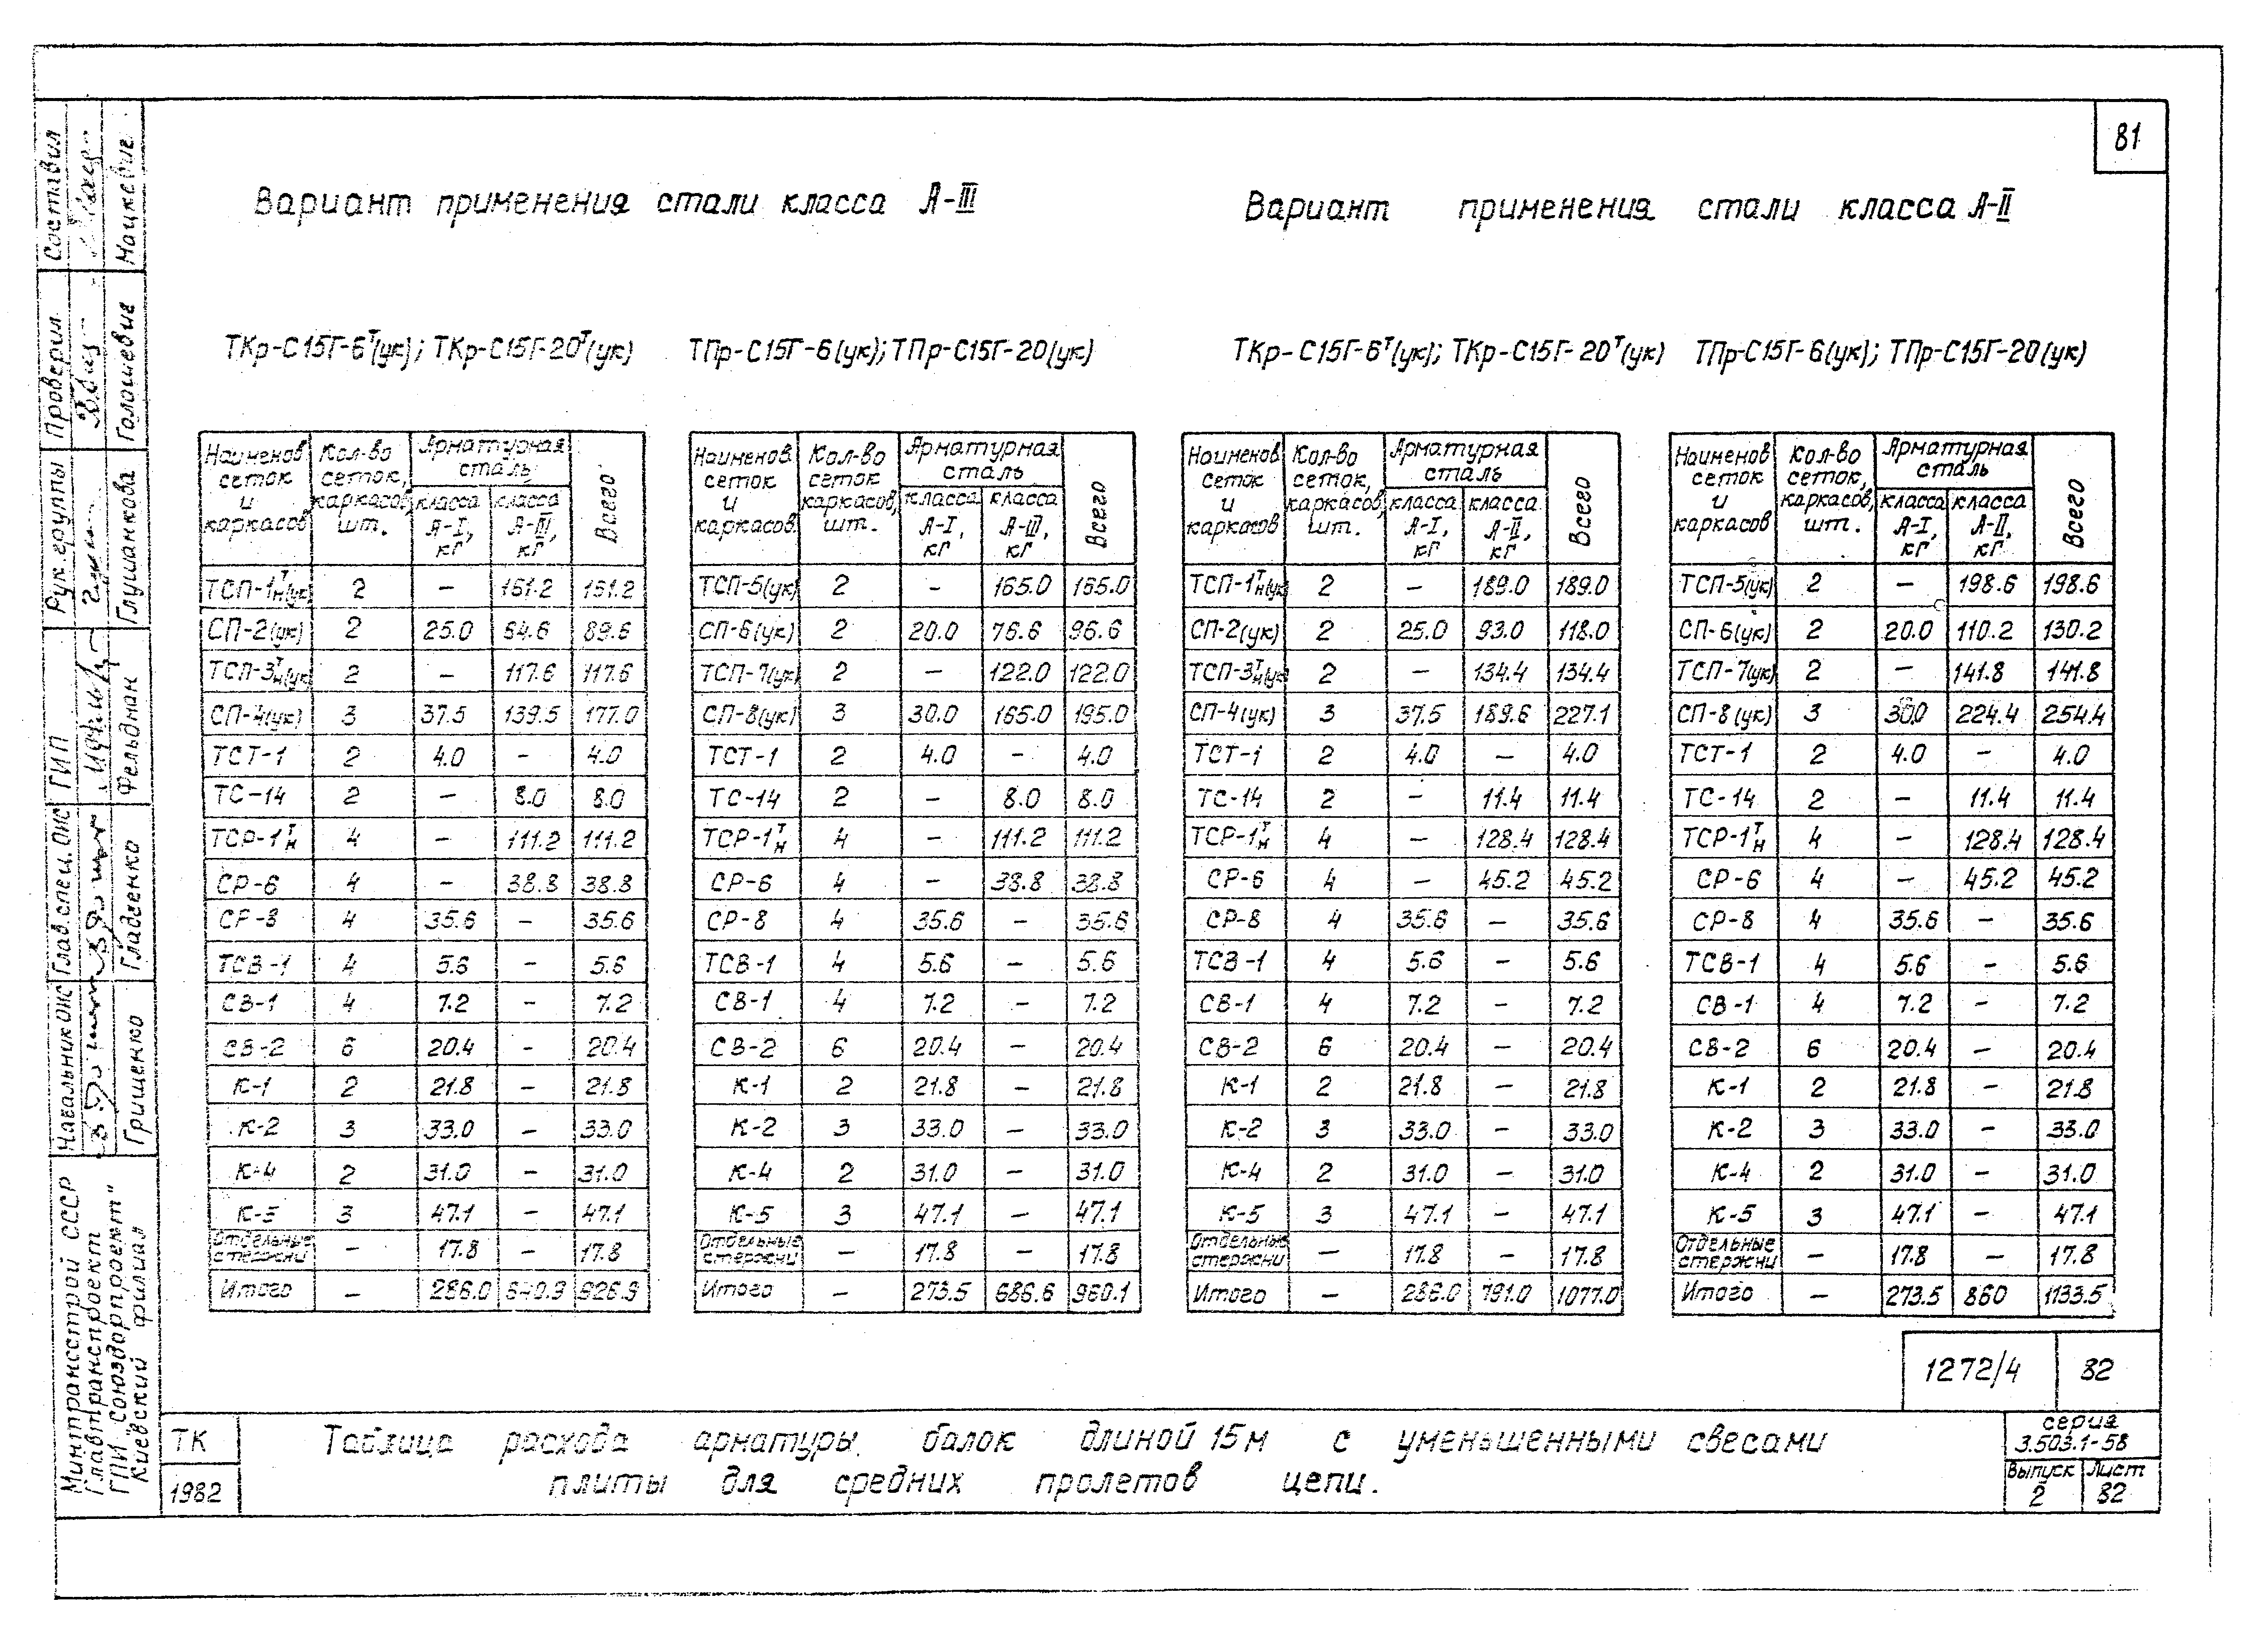 81
Вариант применения стали класса А-III
Вариант применения стали класса А-II
ТКр-С15Г-6Т(ук); ТКр-С15Г-20Т(ук)
ТПр-С15Г-6(ук); ТПр-С15Г-20(ук)
ТКр-С15Г-6Т(ук); ТКр-С15Г-20Т(ук)
ТПр-С15Г-6(ук); ТПр-С15Г-20(ук)
Наименов сеток и каркасов | Кол-во сеток, каркасов, шт. | Арматурная сталь | класса А-I, кг | класса А-III, кг | Всего
ТСП-1Тн(ук) 2 – 161.2 161.2
СП-2(ук) 2 25.0 64.6 89.6
ТСП-3Тн(ук) 2 – 117.6 117.6
СП-4(ук) 3 37.5 139.5 177.0
ТСТ-1 2 4.0 – 4.0
ТС-14 2 – 8.0 8.0
ТСР-1Тн 4 – 111.2 111.2
СР-6 4 – 38.8 38.8
СР-8 4 35.6 – 35.6
ТСВ-1 4 5.6 – 5.6
СВ-1 4 7.2 – 7.2
СВ-2 6 20.4 – 20.4
К-1 2 21.8 – 21.8
К-2 3 33.0 – 33.0
К-4 2 31.0 – 31.0
К-5 3 47.1 – 47.1
Отдельные стержни – 17.8 – 17.8
Итого – 286.0 640.9 926.9
Наименов. сеток и каркасов. | Кол-во сеток каркасов, шт. | Арматурная сталь | класса А-I, кг | класса А-III, кг | Всего
ТСП-5(ук) 2 – 165.0 165.0
СП-6(ук) 2 20.0 76.6 96.6
ТСП-7(ук) 2 – 122.0 122.0
СП-8(ук) 3 30.0 165.0 195.0
ТСТ-1 2 4.0 – 4.0
ТС-14 2 – 8.0 8.0
ТСР-1Тн 4 – 111.2 111.2
СР-6 4 – 38.8 38.8
СР-8 4 35.6 – 35.6
ТСВ-1 4 5.6 – 5.6
СВ-1 4 7.2 – 7.2
СВ-2 6 20.4 – 20.4
К-1 2 21.8 – 21.8
К-2 3 33.0 – 33.0
К-4 2 31.0 – 31.0
К-5 3 47.1 – 47.1
Отдельные стержни – 17.8 – 17.8
Итого – 273.5 686.6 960.1
Наименов сеток и каркасов | Кол-во сеток, каркасов, шт. | Арматурная сталь | класса А-I, кг | класса А-II, кг | Всего
ТСП-1Тн(ук) 2 – 189.0 189.0
СП-2(ук) 2 25.0 93.0 118.0
ТСП-3Тн(ук) 2 – 134.4 134.4
СП-4(ук) 3 37.5 189.6 227.1
ТСТ-1 2 4.0 – 4.0
ТС-14 2 – 11.4 11.4
ТСР-1Тн 4 – 128.4 128.4
СР-6 4 – 45.2 45.2
СР-8 4 35.6 – 35.6
ТСВ-1 4 5.6 – 5.6
СВ-1 4 7.2 – 7.2
СВ-2 6 20.4 – 20.4
К-1 2 21.8 – 21.8
К-2 3 33.0 – 33.0
К-4 2 31.0 – 31.0
К-5 3 47.1 – 47.1
Отдельные стержни – 17.8 – 17.8
Итого – 286.0 791.0 1077.0
Наименов сеток и каркасов | Кол-во сеток, каркасов, шт. | Арматурная сталь | класса А-I, кг | класса А-II, кг | Всего
ТСП-5(ук) 2 – 198.6 198.6
СП-6(ук) 2 20.0 110.2 130.2
ТСП-7(ук) 2 – 141.8 141.8
СП-8(ук) 3 30.0 224.4 254.4
ТСТ-1 2 4.0 – 4.0
ТС-14 2 – 11.4 11.4
ТСР-1Тн 4 – 128.4 128.4
СР-6 4 – 45.2 45.2
СР-8 4 35.6 – 35.6
ТСВ-1 4 5.6 – 5.6
СВ-1 4 7.2 – 7.2
СВ-2 6 20.4 – 20.4
К-1 2 21.8 – 21.8
К-2 3 33.0 – 33.0
К-4 2 31.0 – 31.0
К-5 3 47.1 – 47.1
Отдельные стержни – 17.8 – 17.8
Итого – 273.5 860 1133.5
1272/4 82
ТК
1982
Таблица расхода арматуры балок длиной 15м с уменьшенными свесами
плиты для средних пролетов цепи.
серия
3.503.1-58
Выпуск 2
Лист 82
Минтрансстрой СССР
Главтранспроект
ГПИ "Союздорпроект"
Киевский филиал
Начальник ОИС Грищенко
Глав.спец. ОИС Гладженко
ГИП Фельдман
Рук. группы Глушанкова
Проверил Голошевич
Составил Мацкевич